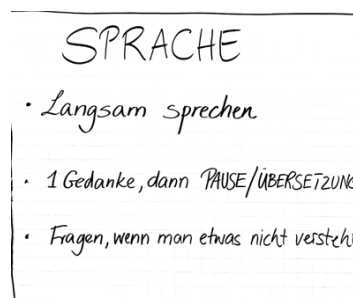 SPRACHE
· Langsam sprechen
· 1 Gedanke, dann PAUSE/ÜBERSETZUNG
· Fragen, wenn man etwas nicht versteht